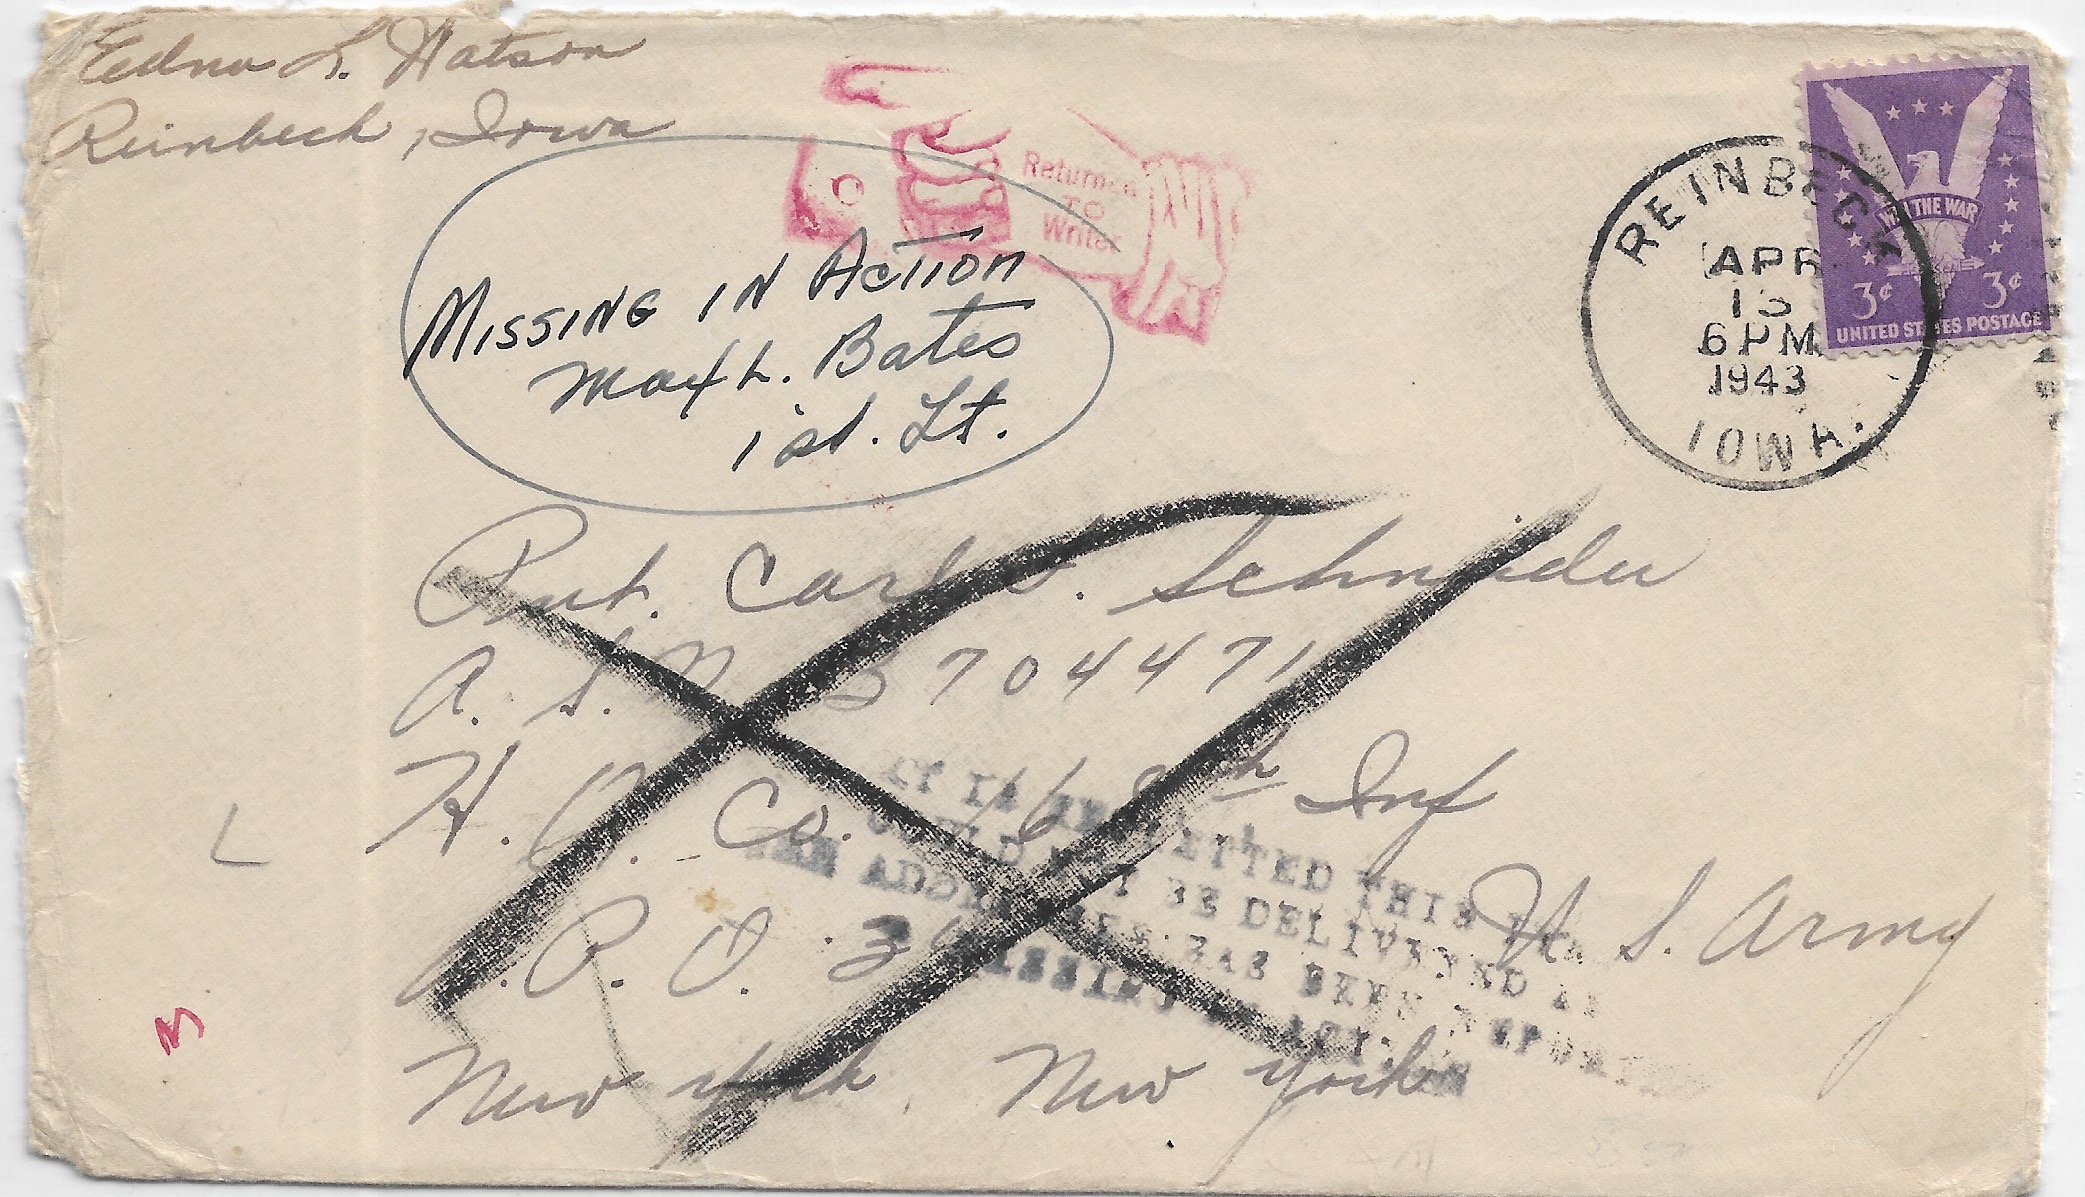 Edna L. Watson
Reinbeck, Iowa
Returned
TO
Writer
REINBECK
APR
13
6 PM
1943
IOWA.
WIN THE WAR
3¢ 3¢
UNITED STATES POSTAGE
MISSING IN ACTION
Max L. Bates
1st. Lt.
Pvt. Carl Schneider
A. S. N. 3704471
H. Q. Co. Inf
A. P. O. U. S. Army
New York, New York
IT IS REGRETTED THIS
COULD NOT BE DELIVERED AS
THE ADDRESSEE HAS BEEN REPORTED
MISSING IN ACTION
M